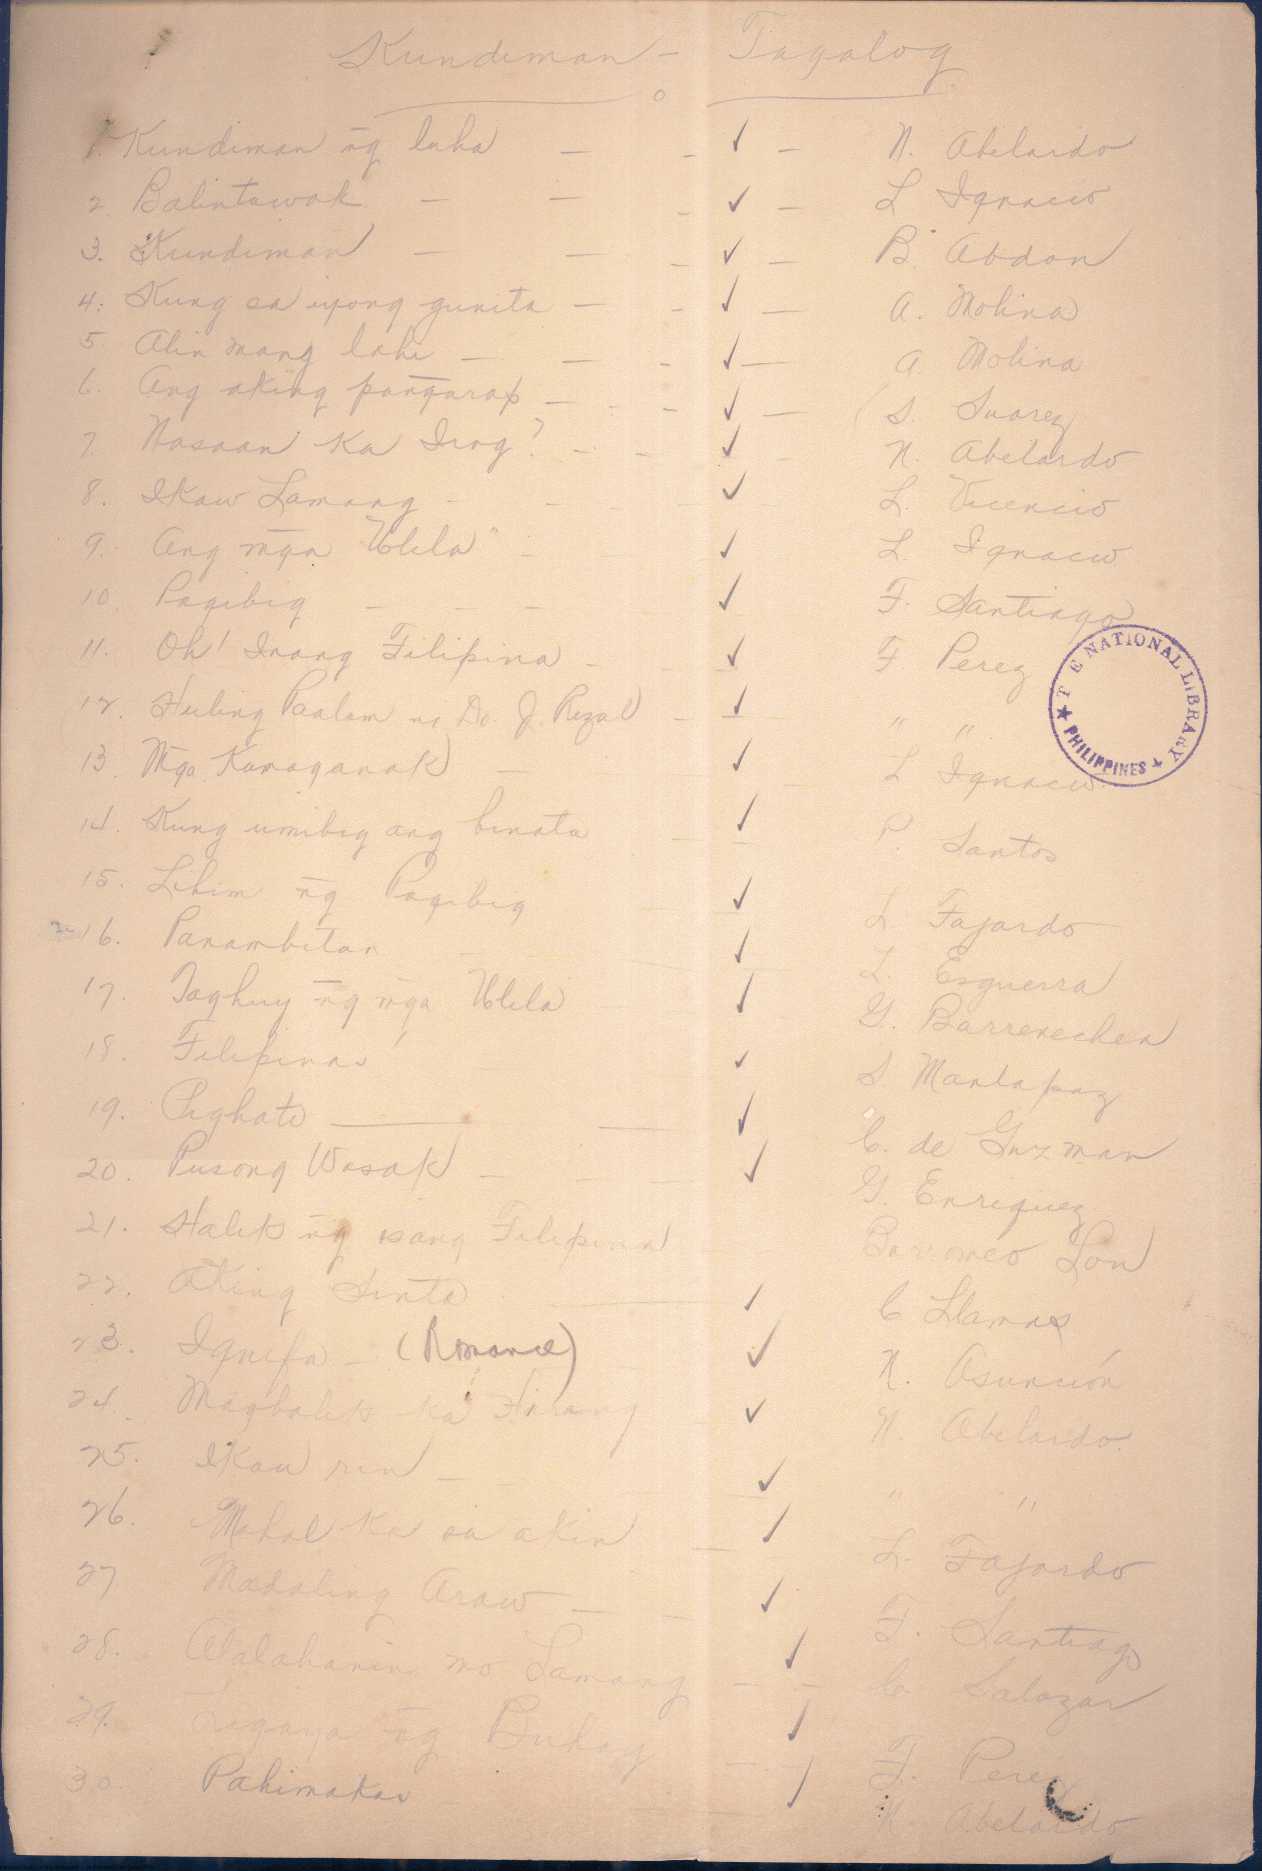 Kundiman - Tagalog
1. Kundiman ng̃ luha — - ✓ - N. Abelardo
2. Balintawak — — - ✓ - L Ignacio
3. Kundiman — — - ✓ - B. Abdon
4. Kung sa iyong gunita — - ✓ - A. Molina
5. Alin mang lahi — — - ✓ - A Molina
6. Ang aking pang̃arap — - ✓ - S. Suarez
7. Nasaan Ka Irog? - - ✓ - N. Abelardo
8. Ikaw Lamang - - ✓ L. Vicencio
9. Ang m̃ga "Ulila" - ✓ L. Ignacio
10. Pagibig — - - ✓ F. Santiago
11. Oh! Inang Filipina - ✓ F Perez
12. Huling Paalam ni Dr J. Rizal - ✓ " "
13. M̃ga Kamaganak — ✓ L Ignacio
14. Kung umibig ang binata ✓ P. Santos
15. Lihim ng̃ Pagibig ✓ L Fajardo
16. Panambitan ✓ L. Esguerra
17. Taghuy ng̃ m̃ga Ulila ✓ G. Barrenechea
18. Filipinas ✓ S. Manlapaz
19. Pighati — — ✓ C. de Guzman
20. Pusong Wasak - - ✓ G. Enriquez
21. Halik ng̃ isang Filipina Borromeo Lou
22. Aking Sinta — ✓ C Llamas
23. Iguifu - (Romance) ✓ N. Asunción
24. Magbalik ka Hirang ✓ N. Abelardo
25. Ikaw rin - - ✓ " "
26. Mahal ka sa akin ✓ L. Fajardo
27 Madaling Araw — - ✓ F. Santiago
28. Alalahanin mo Lamang - - ✓ C. Salazar
29. Ligaya ng̃ Buhay - ✓ F. Perez
30. Pahimakas ✓ N. Abelardo
THE NATIONAL LIBRARY
★ PHILIPPINES ★